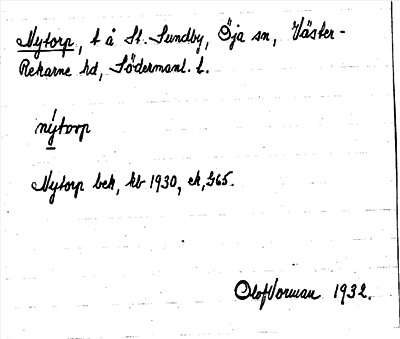 Nytorp, t å St. Sundby, Öja sn, Väster-
Rekarne hd, Södermanl. l.
nýtorp
Nytorp bek, kb 1930, ek, J65.
Olof Vorman 1932.